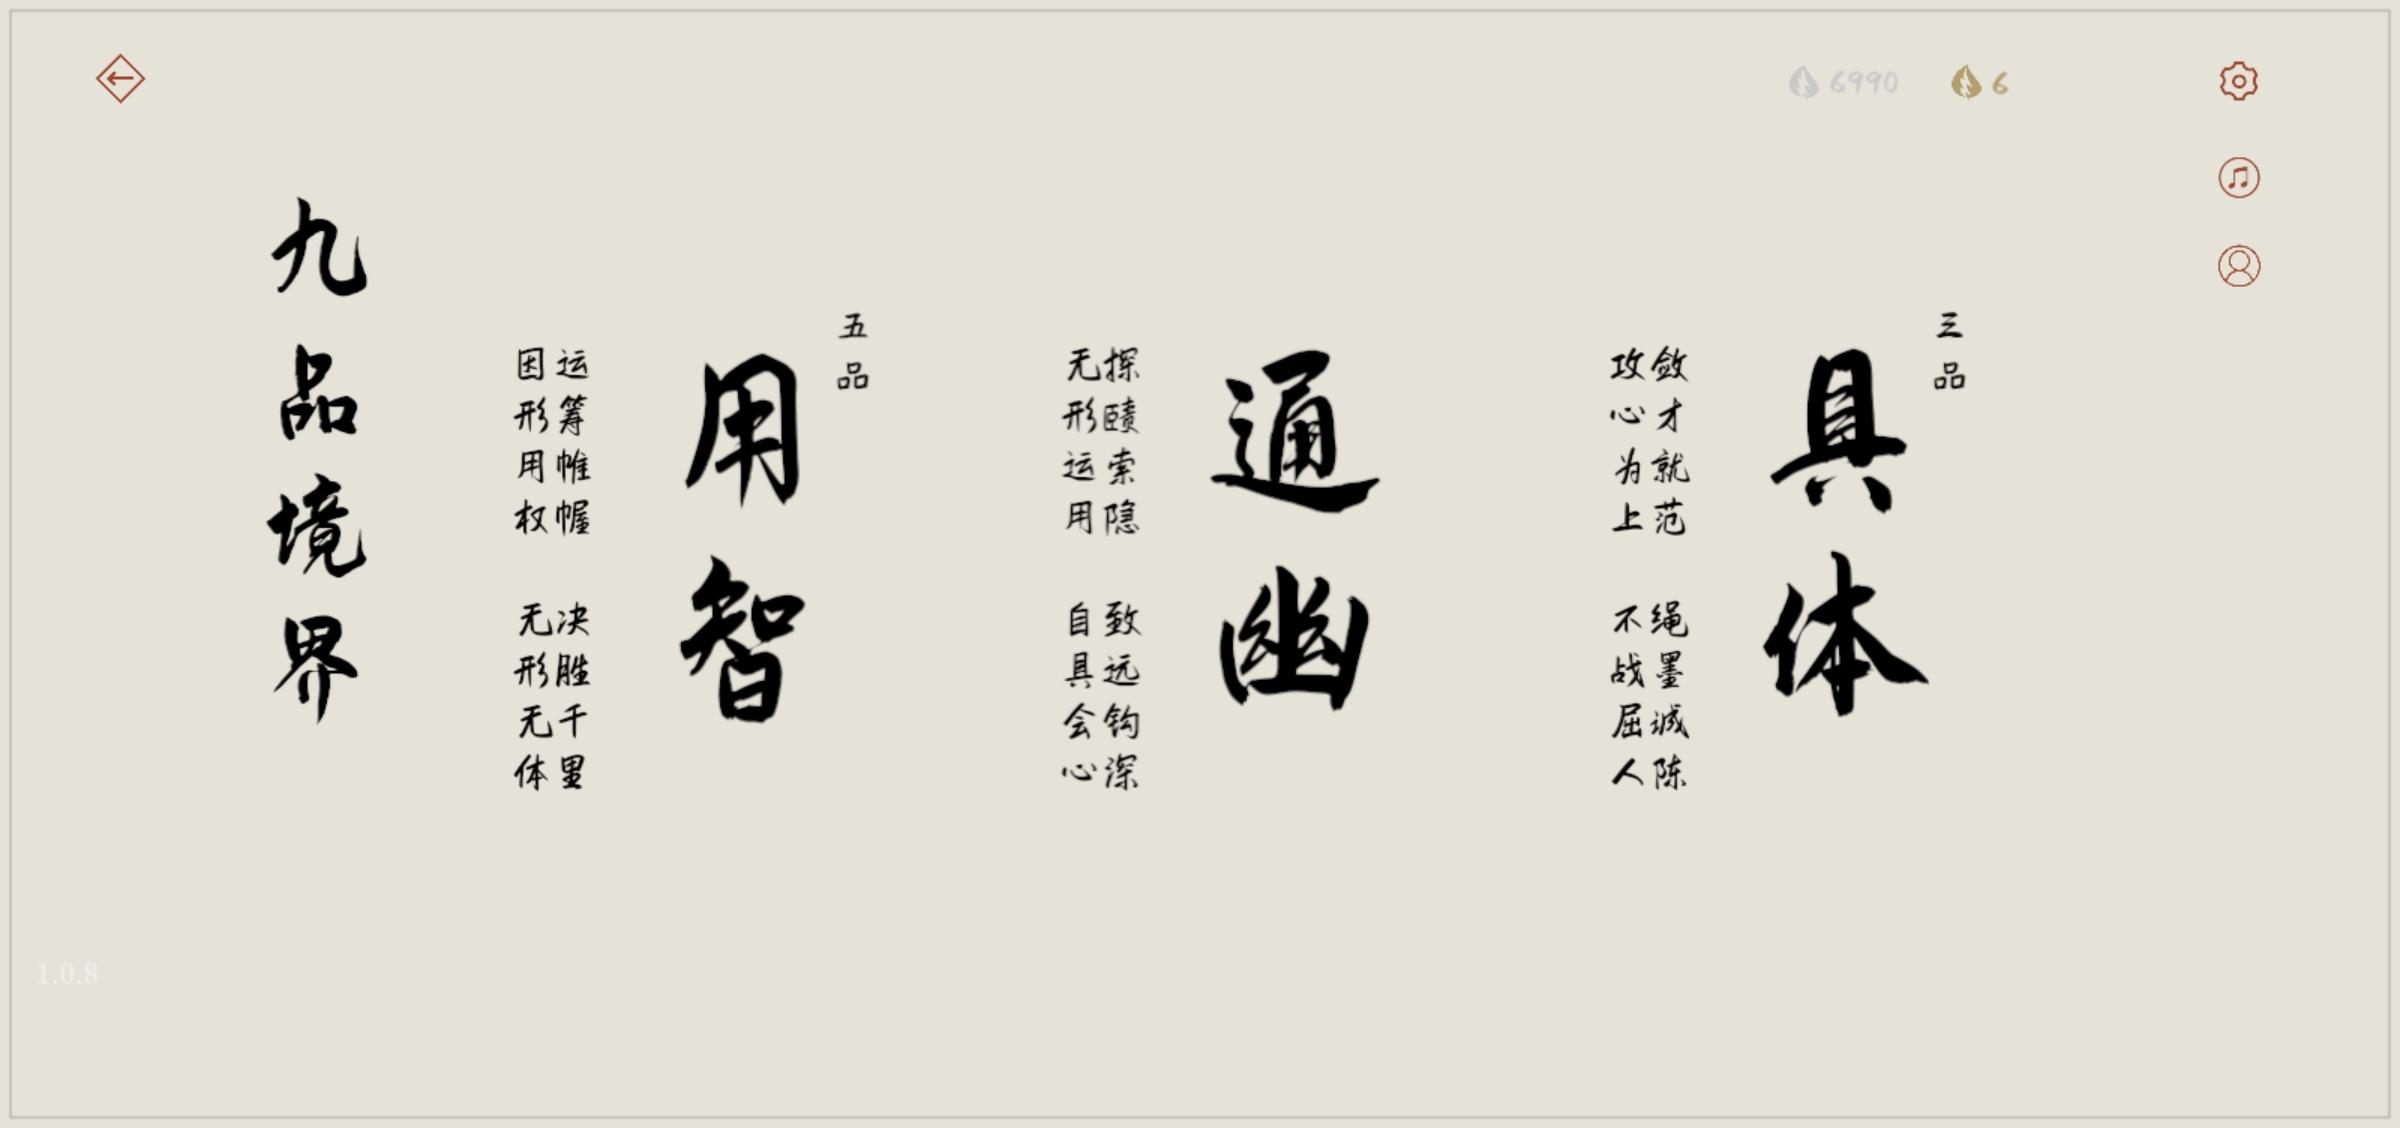 6990
6
三品
具体
敛才就范 绳墨诚陈
攻心为上 不战屈人
通幽
探赜索隐 致远钩深
无形运用 自具会心
五品
用智
运筹帷幄 决胜千里
因形用权 无形无体
九品境界
1.0.8